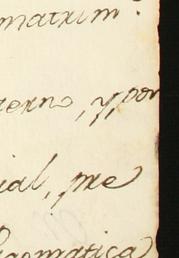 matrim.
terno, y por
ial, pre
ragmatica